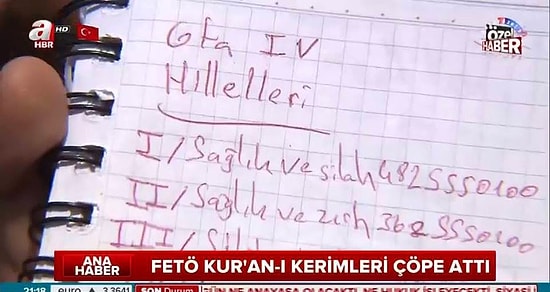 a HD
HBR
ÖZEL
HABER
Gta IV
Hillelleri
I/Sağlık ve silah 482 555 0100
II/Sağlık ve zırh 362 555 0100
III/
ANA
HABER
FETÖ KUR'AN-I KERİMLERİ ÇÖPE ATTI
21:18 euro 3,3654 SON Durum GÜN NE ANAYASA OLACAKTI, NE HUKUK İŞLEYECEKTİ, SİYASİ